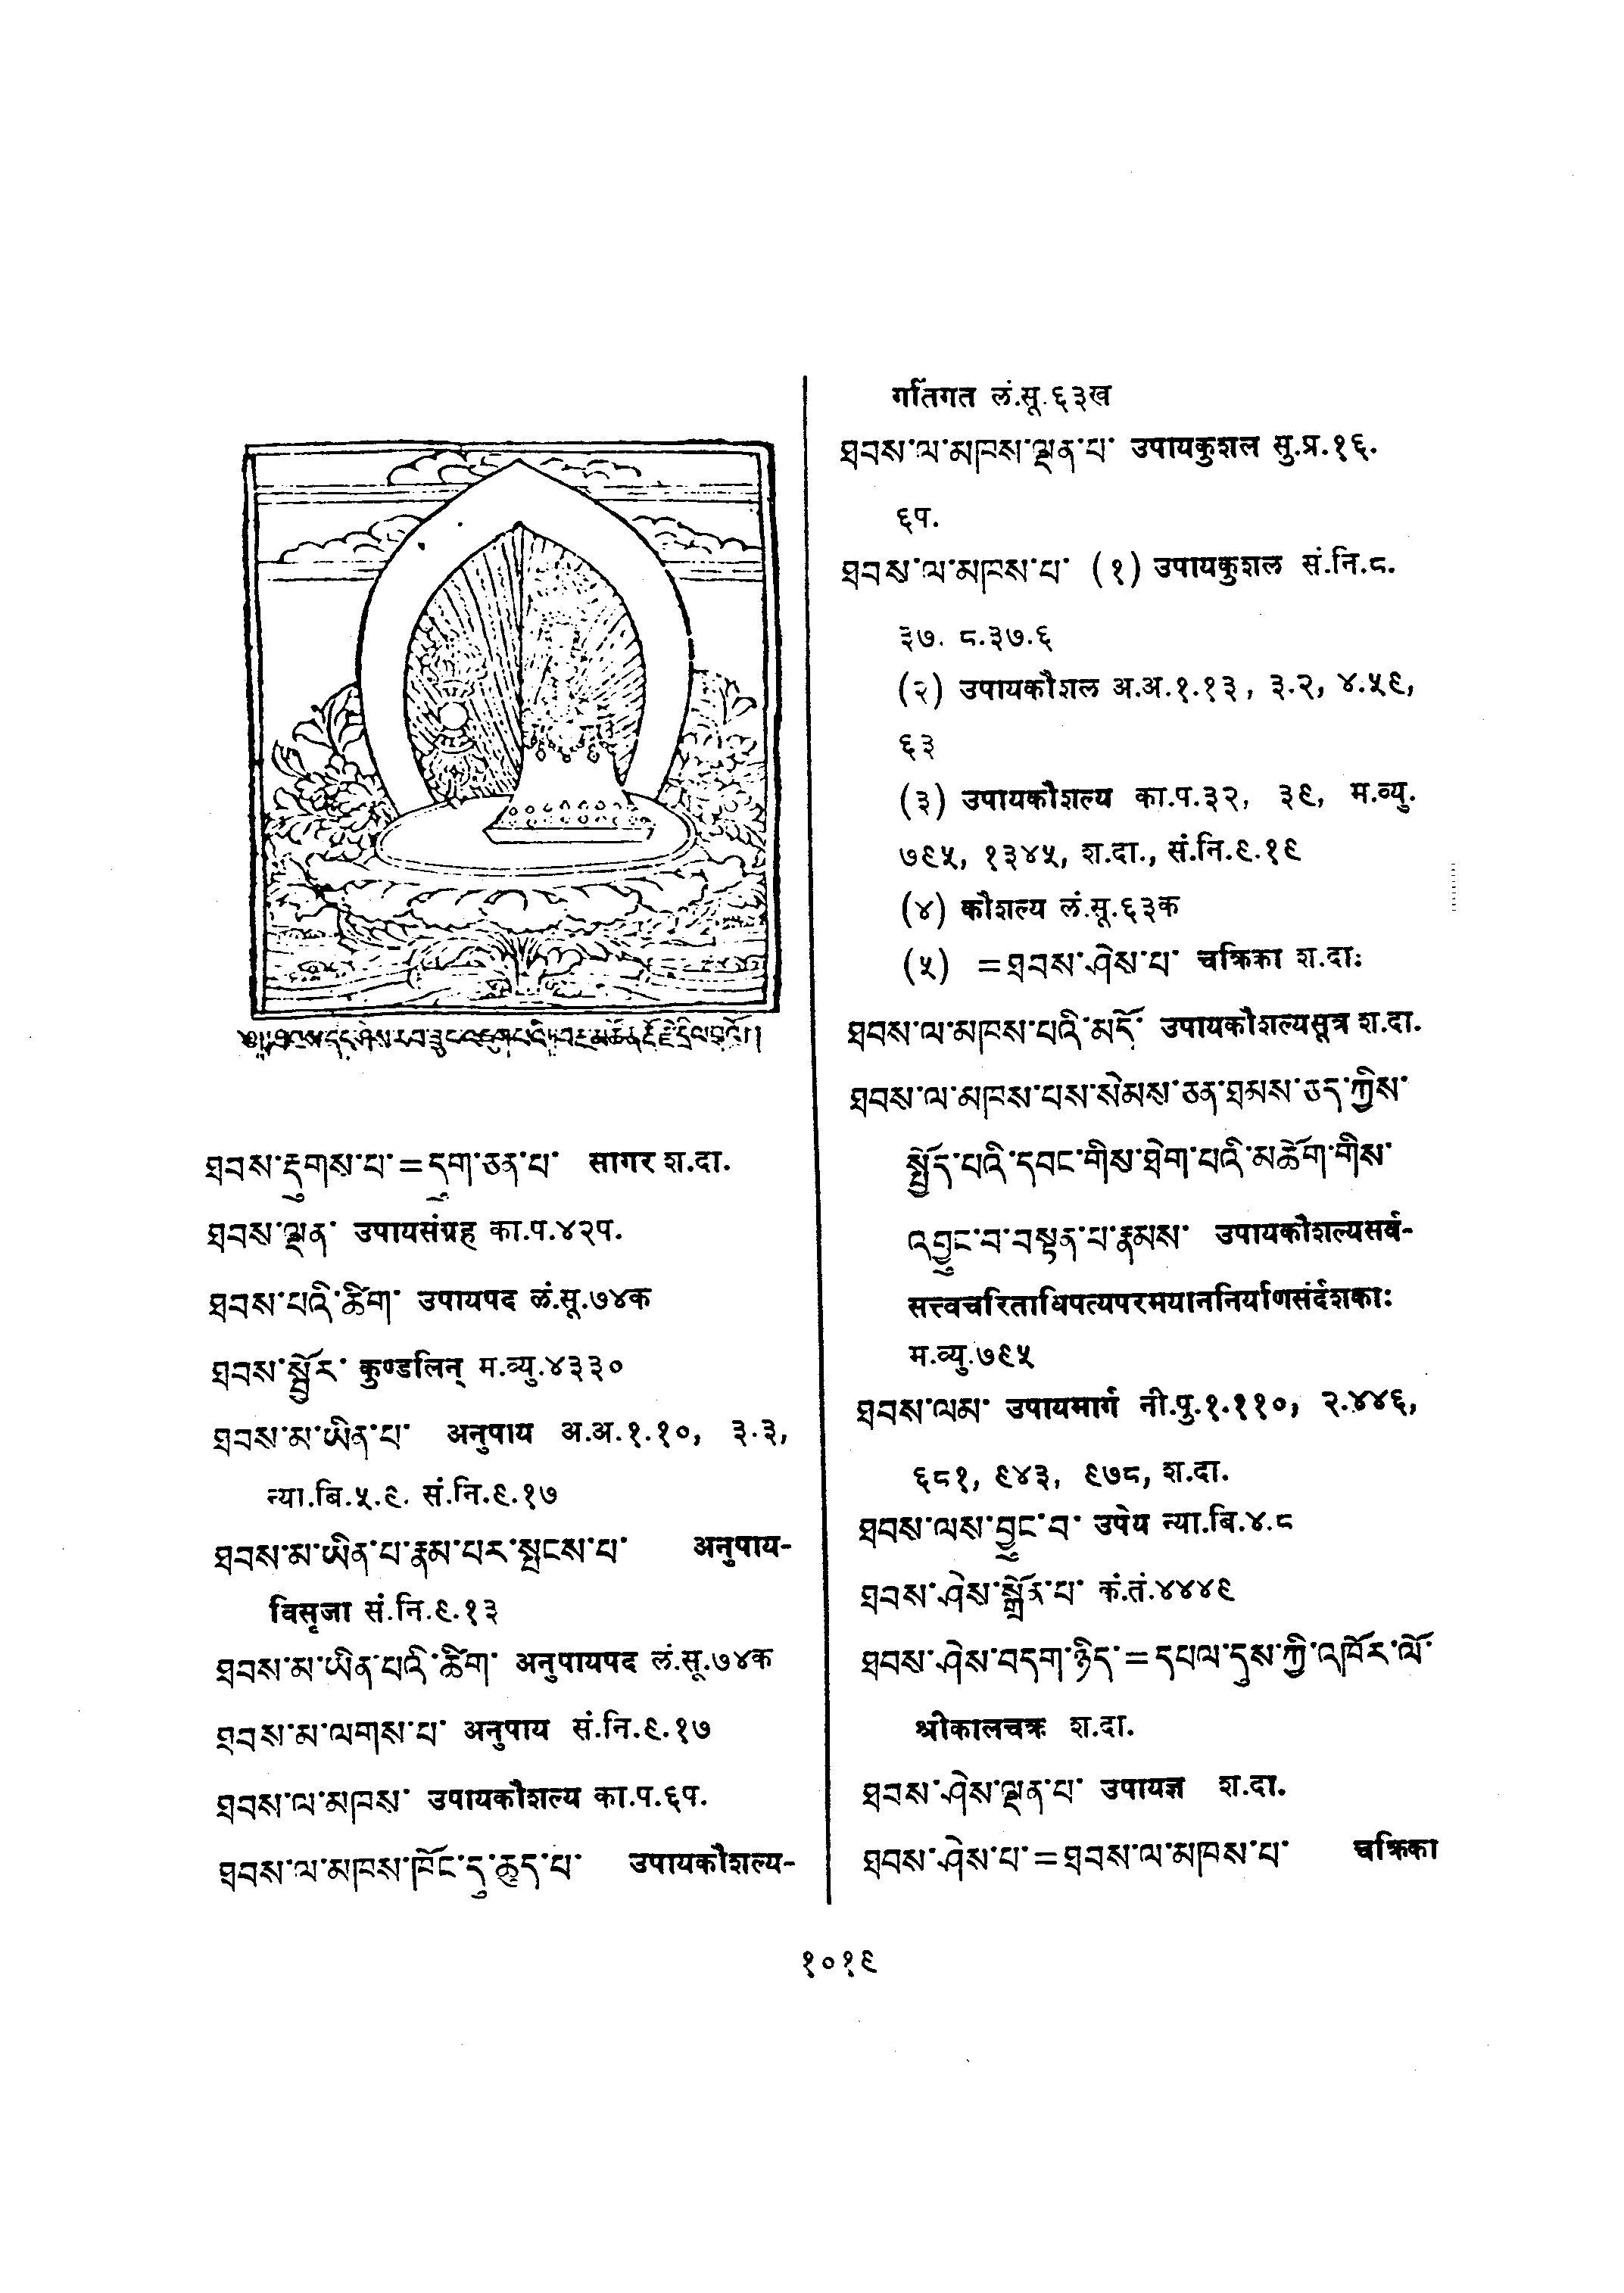 ༄༅།།ཐབས་དང་ཤེས་རབ་ཟུང་འཇུག་པའི་བརྡ་མཚོན་རྡོ་རྗེ་དྲིལ་བུའོ།།
ཐབས་རྡུགས་པ་=དུག་ཅན་པ་ सागर श.दा.
ཐབས་ལྡན་ उपायसंग्रह का.प.४२प.
ཐབས་པའི་ཚིག་ उपायपद लं.सू.७४क
ཐབས་སྦྱོར་ कुण्डलिन् म.व्यु.४३३०
ཐབས་མ་ཡིན་པ་ अनुपाय अ.अ.१.१०, ३.३,
न्या.बि.५.९. सं.नि.९.१७
ཐབས་མ་ཡིན་པ་རྣམ་པར་སྤངས་པ་ अनुपाय-
विसृजा सं.नि.९.१३
ཐབས་མ་ཡིན་པའི་ཚིག་ अनुपायपद लं.सू.७४क
ཐབས་མ་ལགས་པ་ अनुपाय सं.नि.९.१७
ཐབས་ལ་མཁས་ उपायकौशल्य का.प.६प.
ཐབས་ལ་མཁས་ཁོང་དུ་ཆུད་པ་ उपायकौशल्य-
गतिंगत लं.सू.६३ख
ཐབས་ལ་མཁས་ལྡན་པ་ उपायकुशल सु.प्र.१६.
६प.
ཐབས་ལ་མཁས་པ་ (१) उपायकुशल सं.नि.८.
३७. ८.३७.६
(२) उपायकौशल अ.अ.१.१३, ३.२, ४.५९,
६३
(३) उपायकौशल्य का.प.३२, ३९, म.व्यु.
७९५, १३४५, श.दा., सं.नि.९.१९
(४) कौशल्य लं.सू.६३क
(५) =ཐབས་ཤེས་པ་ चक्रिका श.दा:
ཐབས་ལ་མཁས་པའི་མདོ་ उपायकौशल्यसूत्र श.दा.
ཐབས་ལ་མཁས་པས་སེམས་ཅན་ཐམས་ཅད་ཀྱིས་
སྤྱོད་པའི་དབང་གིས་ཐེག་པའི་མཆོག་གིས་
འབྱུང་བ་བསྟན་པ་རྣམས་ उपायकौशल्यसर्व-
सत्त्वचरिताधिपत्यपरमयाननिर्याणसंर्दशकाः
म.व्यु.७९५
ཐབས་ལམ་ उपायमार्ग नी.पु.१.११०, २.४४६,
६८१, ९४३, ९७८, श.दा.
ཐབས་ལས་བྱུང་བ་ उपेय न्या.बि.४.८
ཐབས་ཤེས་སྒྲོན་པ་ कं.तं.४४४९
ཐབས་ཤེས་བདག་ཉིད་=དཔལ་དུས་ཀྱི་འཁོར་ལོ་
श्रीकालचक्र श.दा.
ཐབས་ཤེས་ལྡན་པ་ उपायज्ञ श.दा.
ཐབས་ཤེས་པ་=ཐབས་ལ་མཁས་པ་ चक्रिका
१०१९